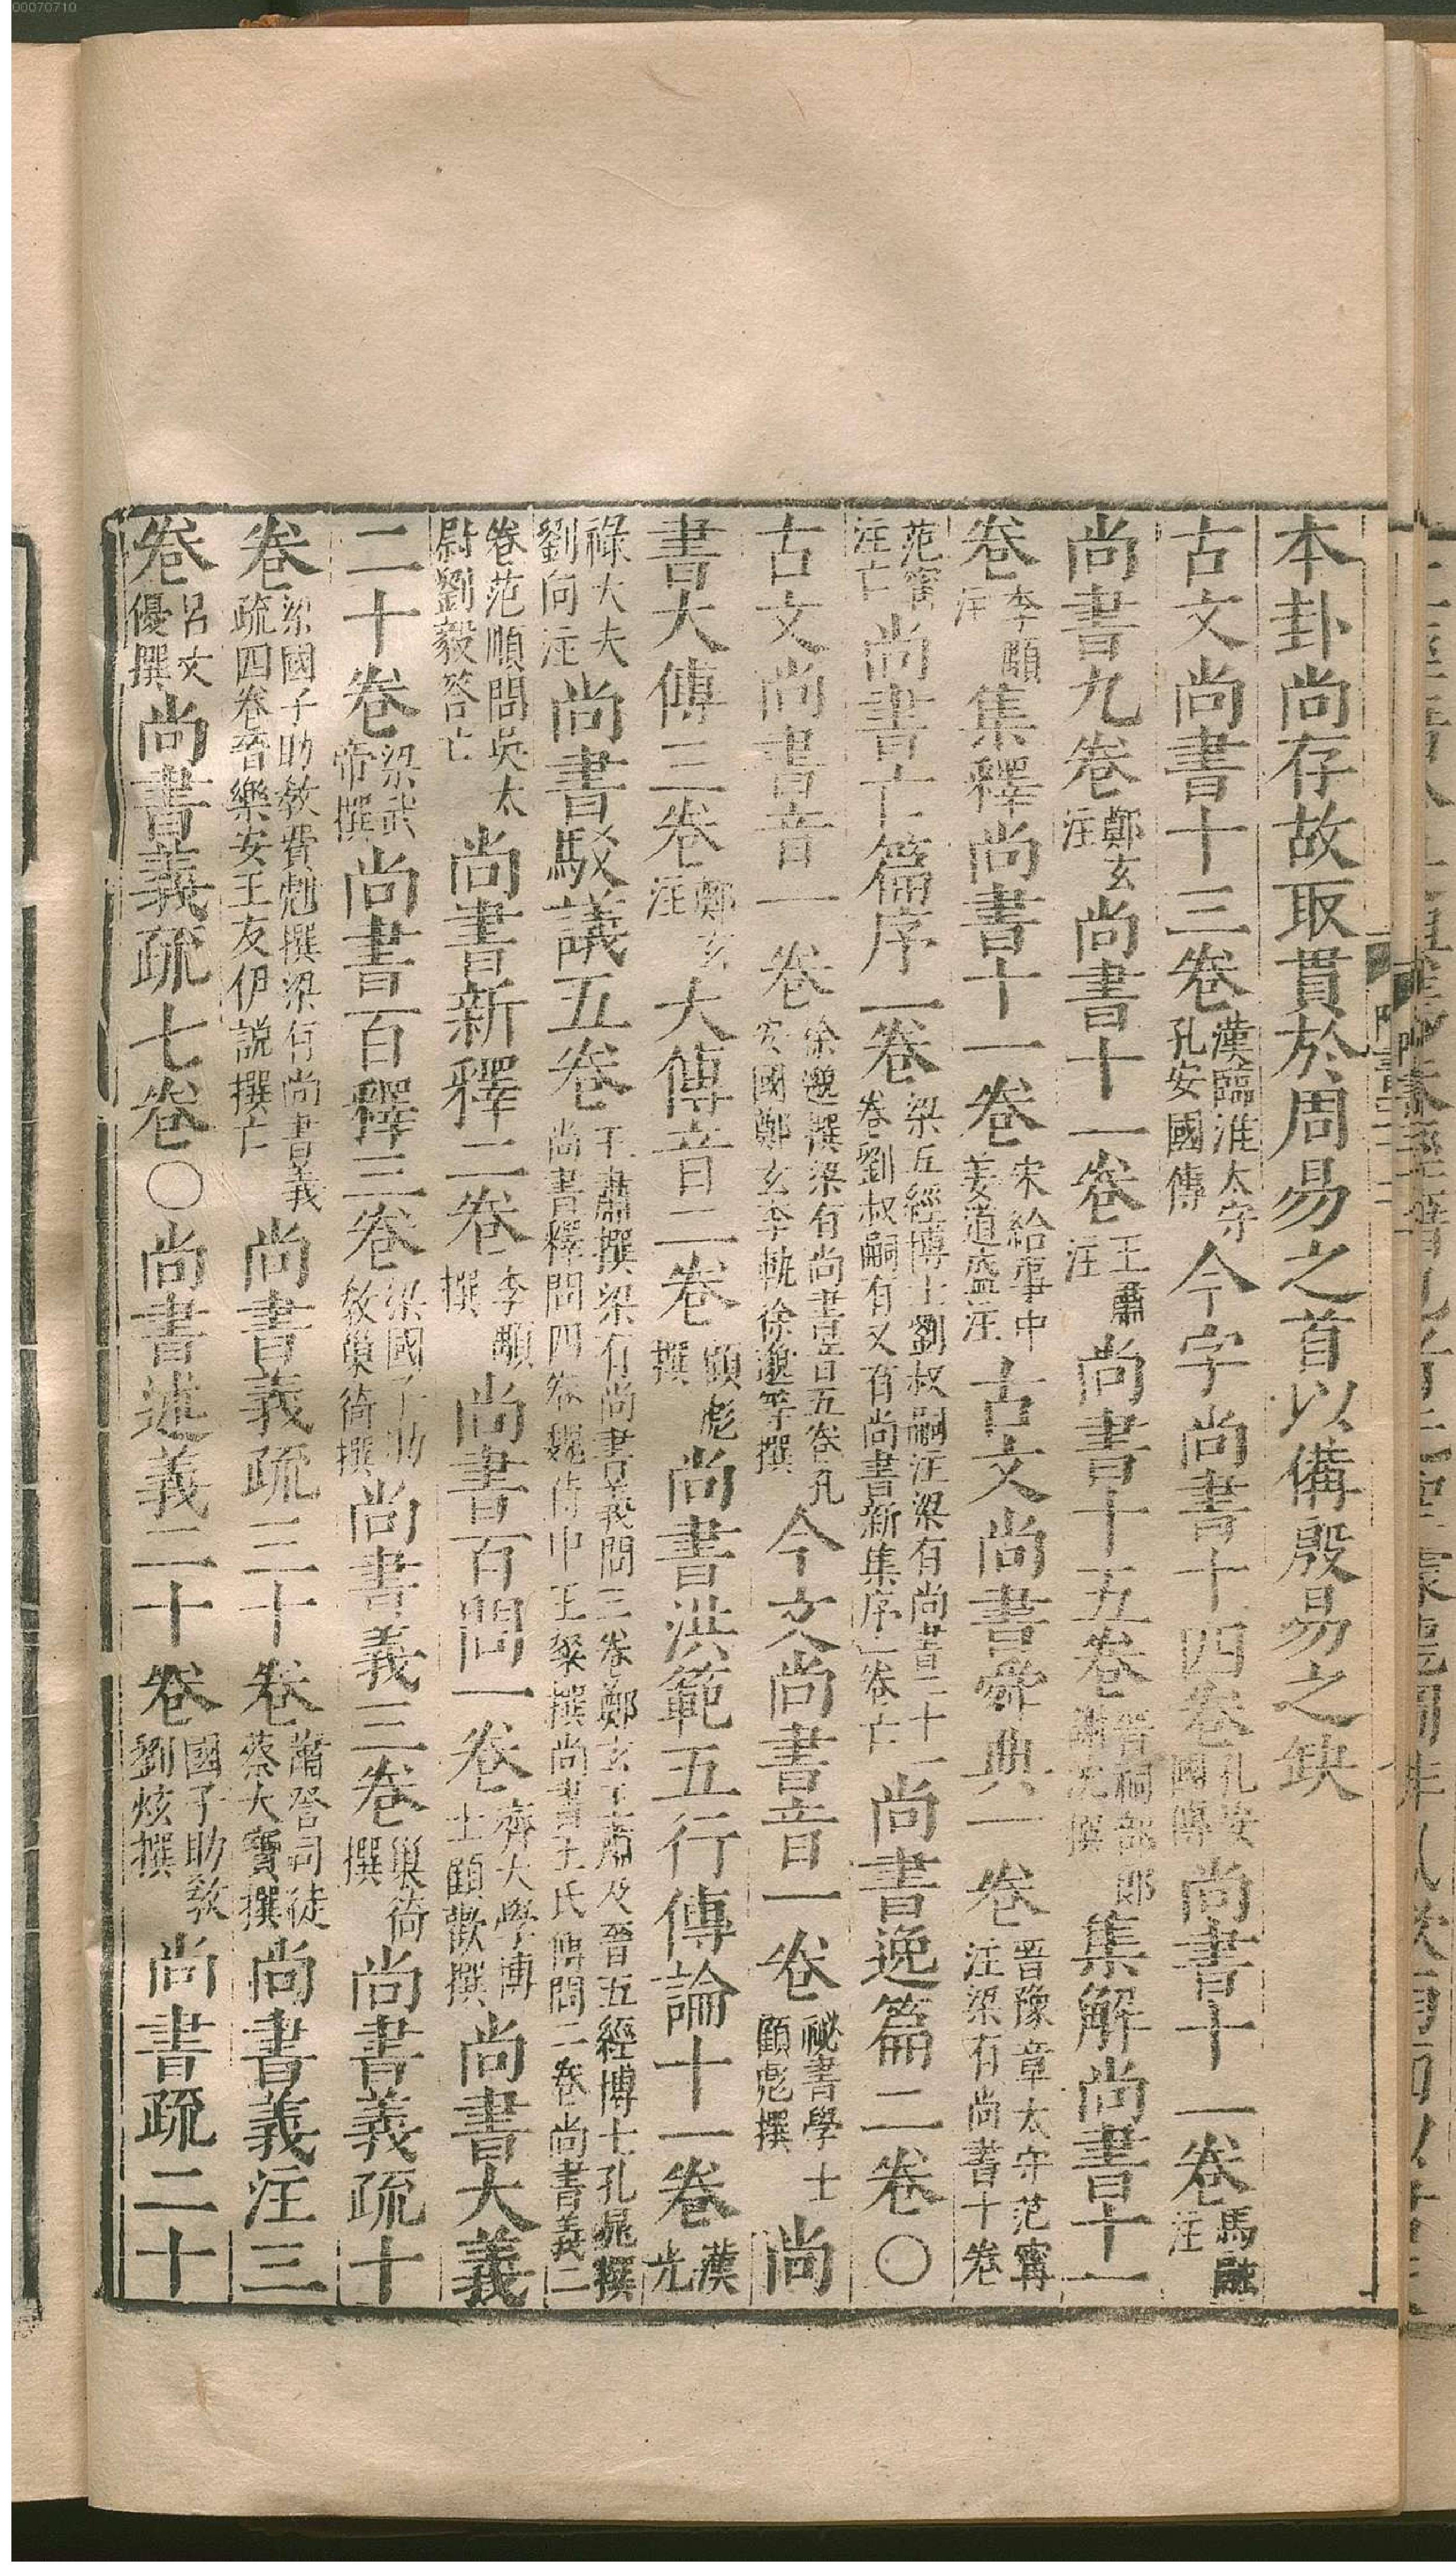 00070710
本卦尚存故取貫於周易之首以備殷易之缺
古文尚書十三卷漢臨淮太守孔安國傳今字尚書十四卷孔安國傳尚書十一卷馬融注
尚書九卷鄭玄注尚書十一卷王肅注尚書十五卷晉祠部郎謝沈撰集解尚書十一
卷李顒注集釋尚書十一卷宋給事中姜道盛注古文尚書舜典一卷晉豫章太守范甯注梁有尚書十卷
范甯注亡尚書亡篇序一卷梁五經博士劉叔嗣注梁有尚書二十一卷劉叔嗣有又有尚書新集序一卷亡尚書逸篇二卷〇
古文尚書音一卷徐邈撰梁有尚書音五卷孔安國鄭玄李軌徐邈等撰今文尚書音一卷祕書學士顧彪撰尚
書大傳三卷鄭玄注大傳音二卷顧彪撰尚書洪範五行傳論十一卷漢光
祿大夫劉向注尚書駁議五卷王肅撰梁有尚書義問三卷鄭玄王肅及晉五經博士孔晁撰尚書釋問四卷魏侍中王粲撰尚書王氏傳問二卷尚書義二
卷范順問吳太尉劉毅答亡尚書新釋二卷李顒撰尚書百問一卷齊大學博士顧歡撰尚書大義
二十卷梁武帝撰尚書百釋三卷梁國子助敎巢猗撰尚書義三卷巢猗撰尚書義疏十
卷梁國子助敎費甝撰梁有尚書義疏四卷晉樂安王友伊說撰亡尚書義疏三十卷蕭詧司徒蔡大寶撰尚書義注三
卷呂文優撰尚書義疏七卷〇尚書述義二十卷國子助敎劉炫撰尚書疏二十